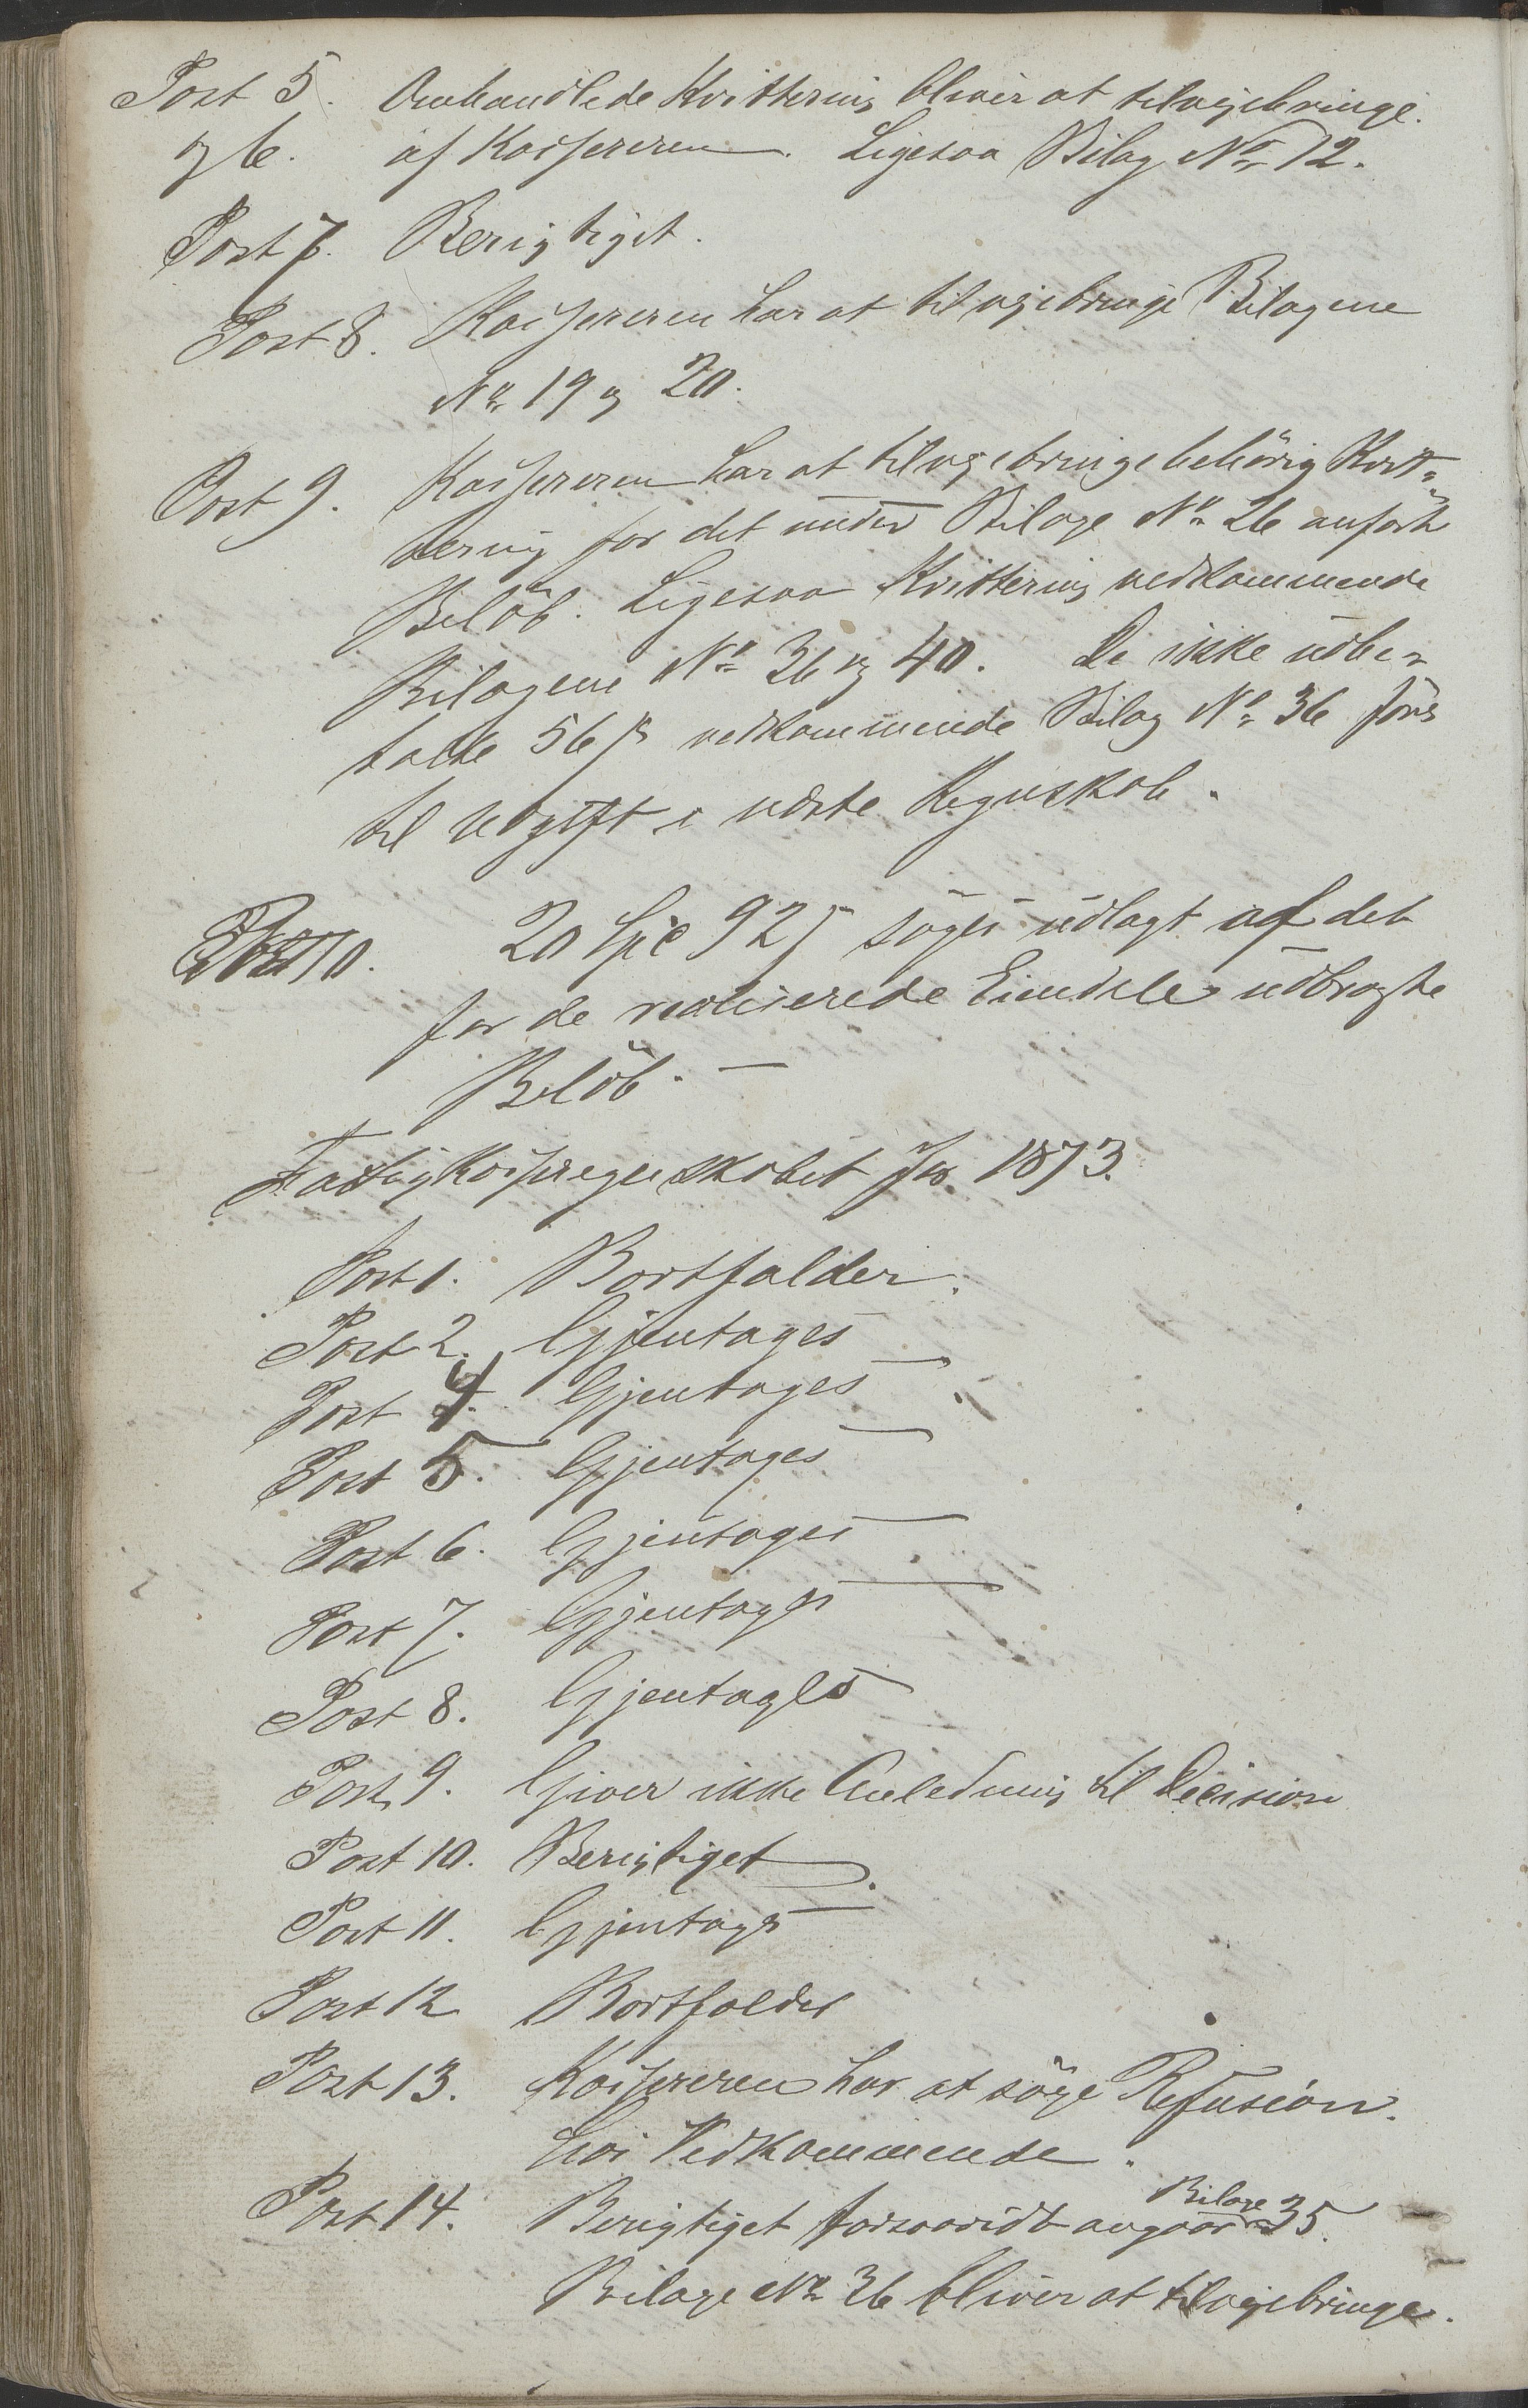 Post 5. Omhandlede Kvittering bliver at tilvejebringe.
og 6. af Kassereren. Ligesaa Bilag No 12.
Post 7. Berigtiget.
Post 8. Kassereren har at tilvejebringe Bilagene
No 19 og 20.
Post 9. Kassereren har at tilvejebringe behörig Kvit-
tering for det under Bilage No 26 anförte
Belöb. Ligesaa Kvittering vedkommende
Bilagene No 36 og 40. De ikke udbe-
talte 56 ß vedkommende Bilag No 36 förs
til Udgift i næste Regnskab.
Post 10. 20 Spd 92 ß söges udlagt af det
for de realiserede Eiendele udbragte
Belöb. —
Fattigkasseregnskabet for 1873.
Post 1. Bortfalder.
Post 2. Gjentages
Post 4. Gjentages
Post 5. Gjentages
Post 6. Gjentages
Post 7. Gjentages
Post 8. Gjentages
Post 9. Giver ikke Anledning til Decision
Post 10. Berigtiget.
Post 11. Gjentages
Post 12 Bortfalder
Post 13. Kassereren har at söge Refusion.
hos Vedkommende.
Post 14. Berigtiget forsaavidt angaar Bilage 35.
Bilage No 36 bliver at tilvejebringe.